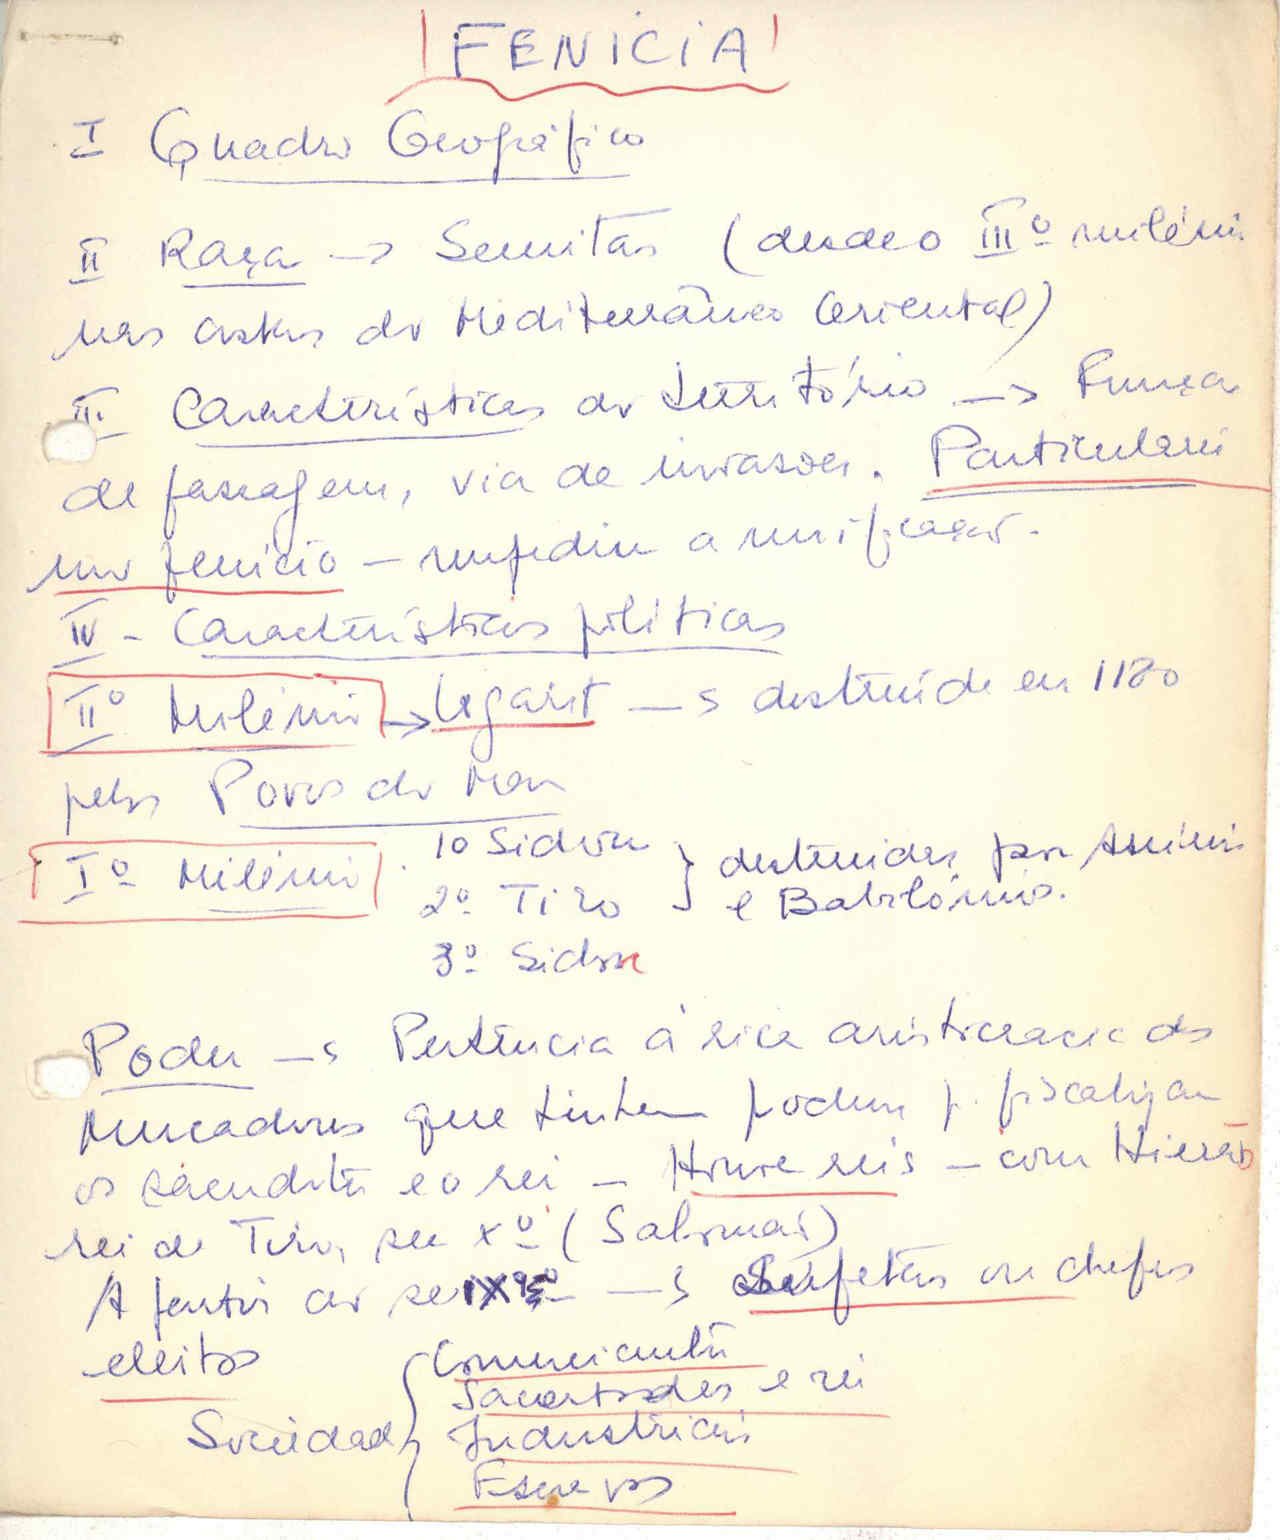 FENÍCIA
I Quadro Geográfico
II Raça -> Semitas (desde o IIIº milénio
nas costas do Mediterrâneo Oriental)
III Características do território -> Função
de passagem, via de invasões. Particularis
mo fenício - impediu a unificação.
IV - Características políticas
IIº Milénio -> Ugarit -> destruída em 1180
pelos Povos do Mar
Iº Milénio 1º Sidon } destruídas por Assírios
2º Tiro e Babilónios.
3º Sidon
Poder -> Pertencia à rica aristocracia dos
Mercadores que tinham poderes p. fiscalizar
os sacerdotes e o rei - Houve reis - com Hierão
rei de Tiro, séc Xº (Salomão)
A partir do séc IXº -> Sufetas ou chefes
eleitos
Sociedade { Comerciantes
Sacerdotes e rei
Industriais
Escravos